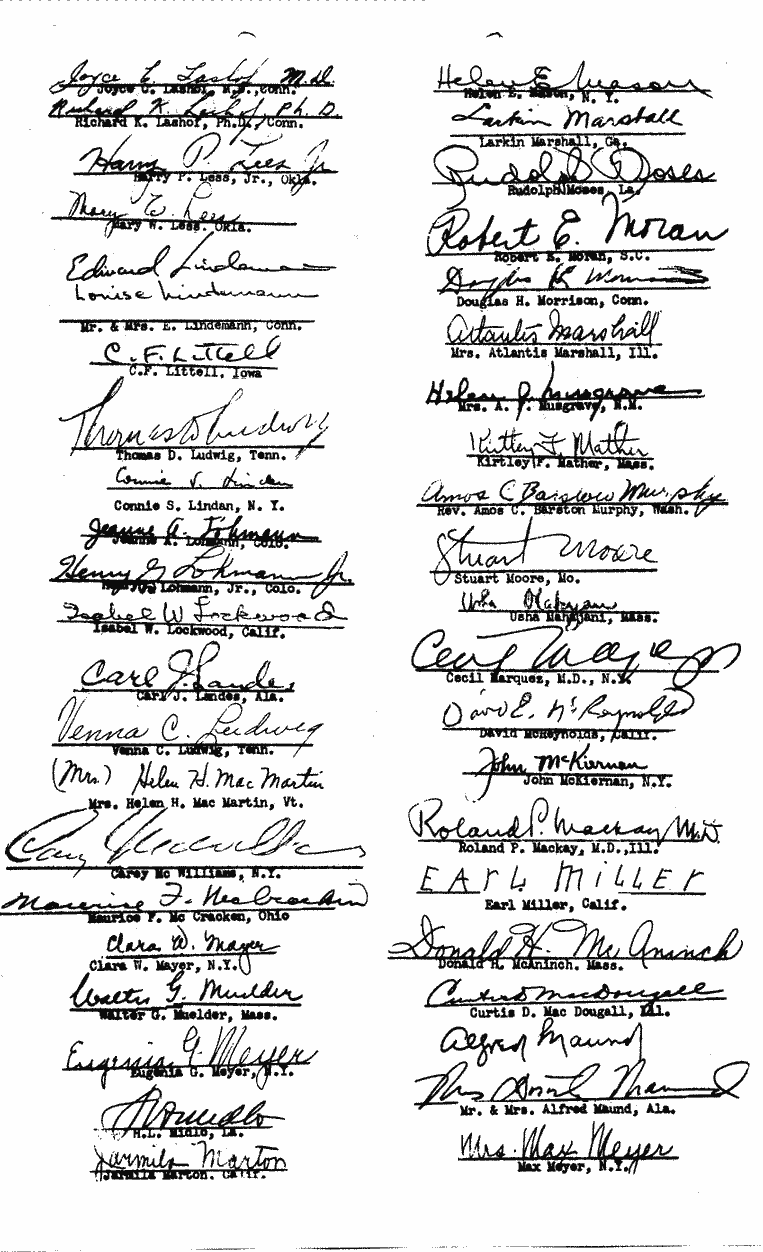 Joyce C. Lashof M.D.
Joyce C. Lashof, M.D., Conn.
Richard K. Lashof, Ph.D.
Richard K. Lashof, Ph.D., Conn.
Harry P. Lees Jr
Harry P. Less, Jr., Okla.
Mary W. Lees
Mary W. Less. Okla.
Edward Lindemann
Louise Lindemann
Mr. & Mrs. E. Lindemann, Conn.
C. F. Littell
C.F. Littell, Iowa
Thomas D Ludwig
Thomas D. Ludwig, Tenn.
Connie S. Lindan
Connie S. Lindan, N. Y.
Jeanne A. Lohmann
Jeanne A. Lohmann, Colo.
Henry G Lohmann Jr.
Lohmann, Jr., Colo.
Isabel W Lockwood
Isabel W. Lockwood, Calif.
Carl J. Landes
Carl J. Landes, Ala.
Venna C. Ludwig
Venna C. Ludwig, Tenn.
(Mrs.) Helen H. Mac Martin
Mrs. Helen H. Mac Martin, Vt.
Carey McWilliams
Carey Mc Williams, N.Y.
Maurice F. McCrackin
Maurice F. Mc Cracken, Ohio
Clara W. Mayer
Clara W. Mayer, N.Y.
Walter G. Muelder
Walter G. Muelder, Mass.
Eugenia G. Meyer
Eugenia G. Meyer, N.Y.
H.L. Midlo, La.
Jarmila Marton
Jarmila Marton. Calif.
Helen E. Mason
Helen E. Mason, N. Y.
Larkin Marshall
Larkin Marshall, Ga.
Rudolph Moses
Rudolph Moses, La.
Robert E. Moran
Robert E. Moran, S.C.
Douglas H. Morrison, Conn.
Atlantis Marshall
Mrs. Atlantis Marshall, Ill.
Helen J. Musgrave
Mrs. A. J. Musgrave, N.M.
Kirtley F. Mather
Kirtley F. Mather, Mass.
Amos C Barstow Murphy
Rev. Amos C. Barston Murphy, Wash.
Stuart Moore
Stuart Moore, Mo.
Usha Mahajani
Usha Mahajani, Mass.
Cecil Marquez
Cecil Marquez, M.D., N.Y.
David E. McReynolds
David McReynolds, Calif.
John McKiernan
John McKiernan, N.Y.
Roland P. Mackay M.D.
Roland P. Mackay, M.D., Ill.
EARL MILLER
Earl Miller, Calif.
Donald H. McAninch
Donald H. McAninch. Mass.
Curtis D. MacDougall
Curtis D. Mac Dougall, Ill.
Alfred Maund
Mrs Maund
Mr. & Mrs. Alfred Maund, Ala.
Mrs. Max Meyer
Max Meyer, N.Y.